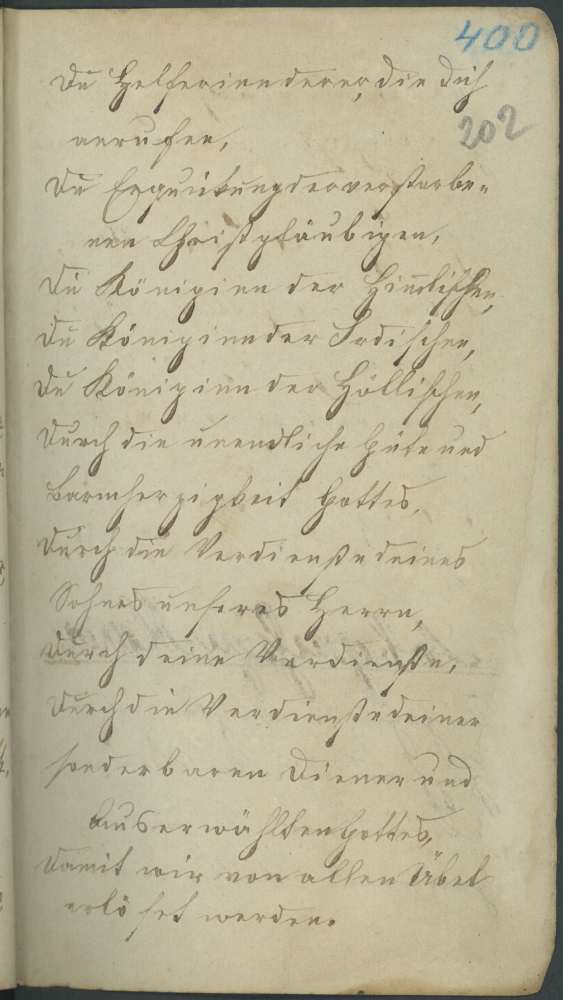 400
Du Helferinn derer, die dich
202
anrufen,
Du Erquikung der verstorbe-
nen Christgläubigen,
Du Königinn der Himlischen,
Du Königinn der Irdischen,
Du Königinn der Höllischen,
Durch die unendliche Güte und
Barmherzigkeit Gottes,
Durch die Verdienste deines
Sohnes unseres Herrn,
Durch deine Verdienste,
Durch die Verdienste deiner
sonderbaren Diener und
Auserwählten Gottes,
Damit wir von allen Übel
erlöset werden.